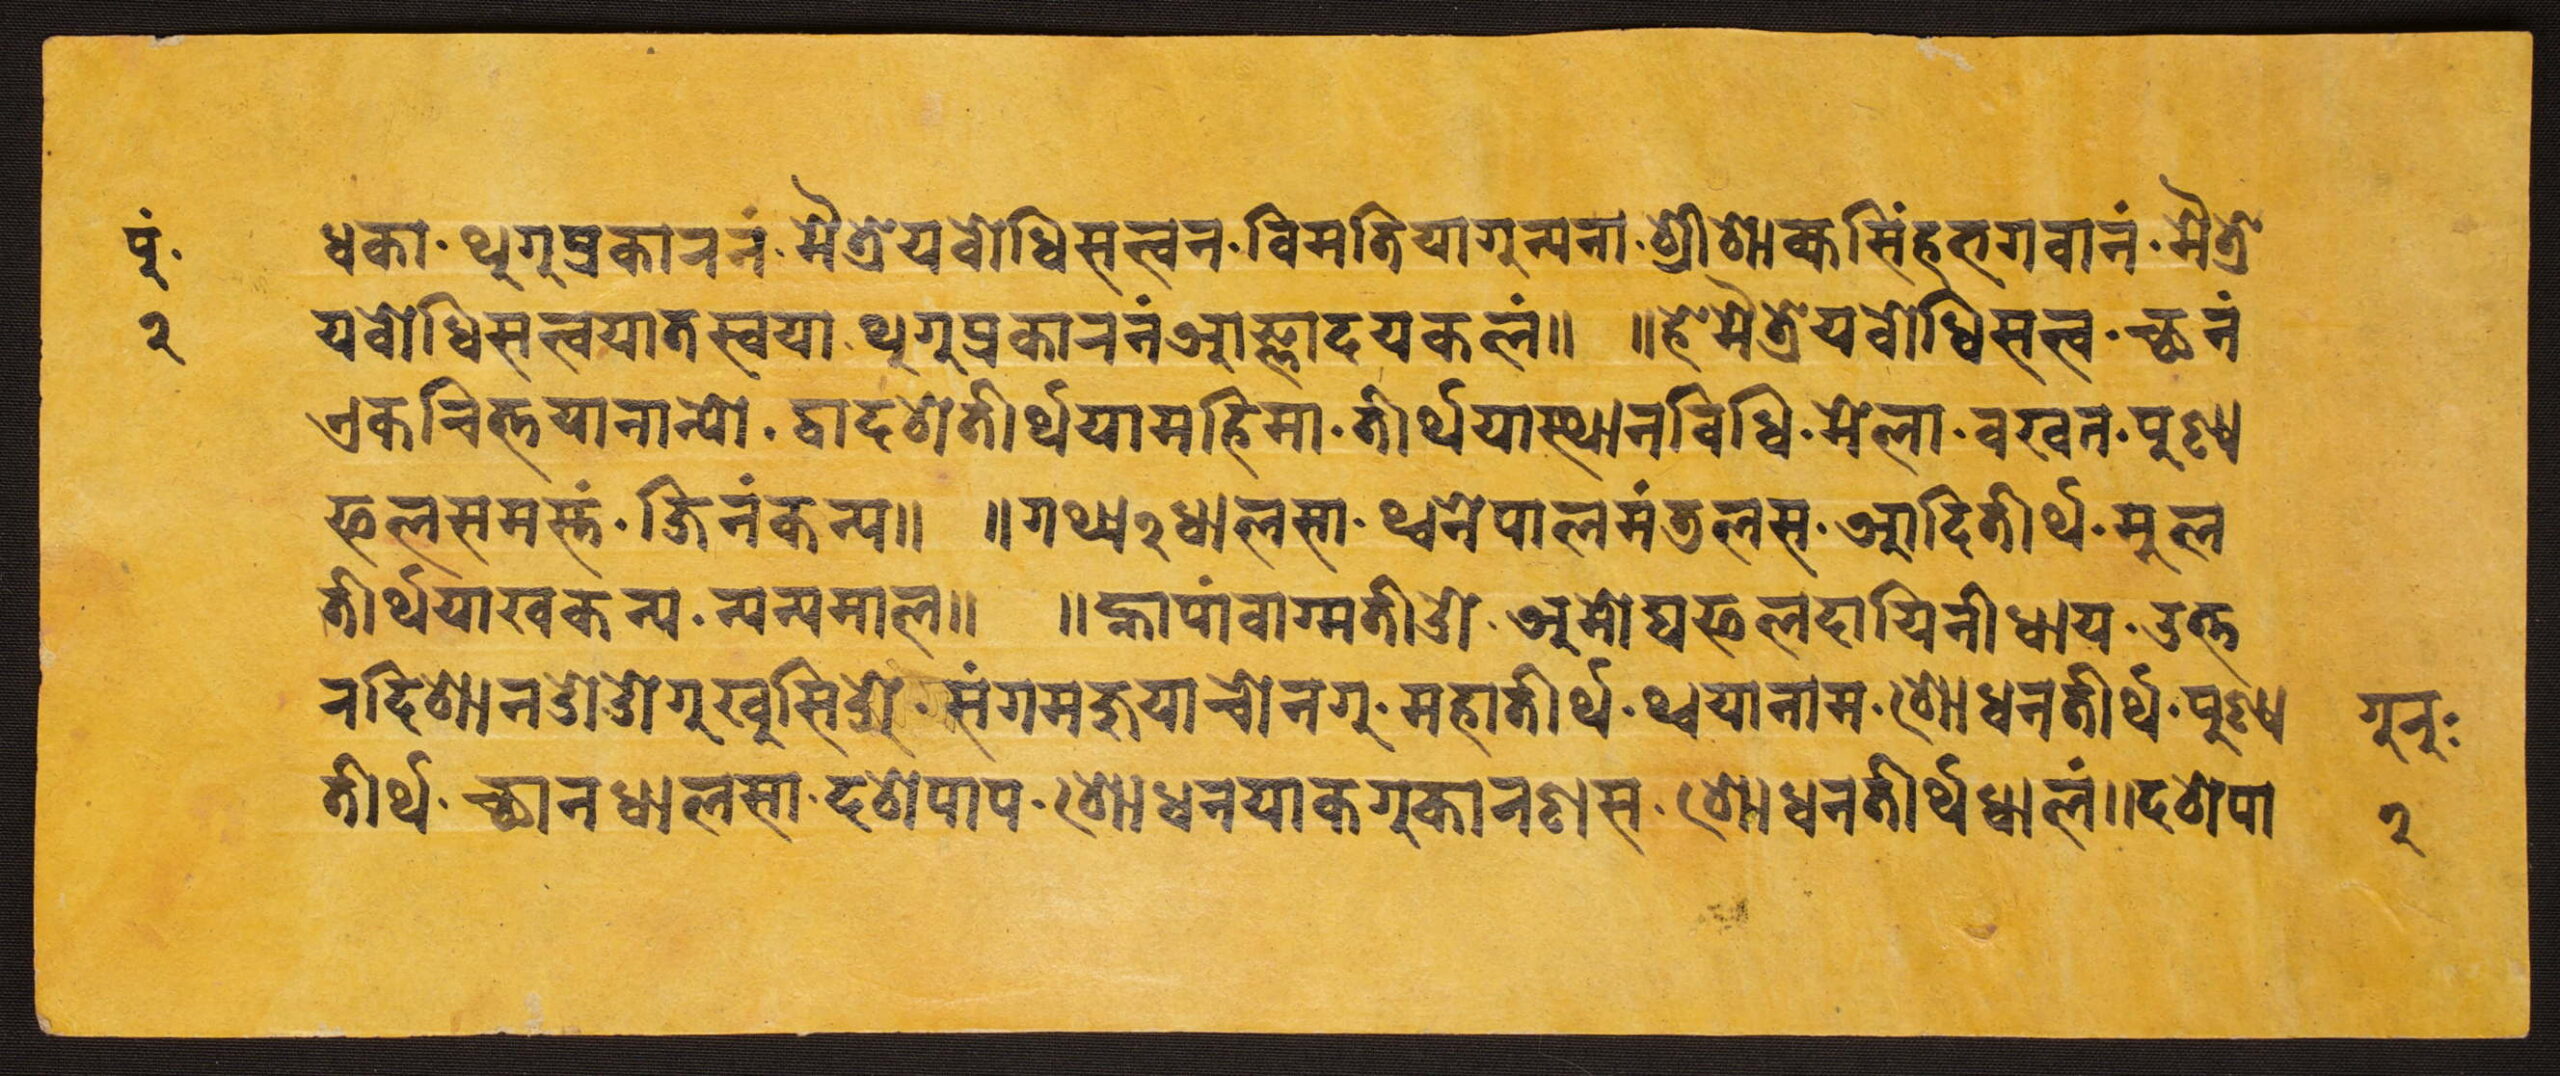 पुं॰
२
धका॰ थुगुप्रकारनं॰ मैत्रेयबोधिसत्त्वन॰ विनतियागुन्यना॰ श्रीशाक्यसिंहभगवानं॰ मैत्रे
यबोधिसत्त्वयातस्वया॰ थुगुप्रकारनंआज्ञादयकलं॥ ॥हेमैत्रेयबोधिसत्त्व॰ छनं
एकचित्तयानान्यो॰ द्वादशतीर्थयामहिमा॰ तीर्थयास्थानविधि॰ मेला॰ वखन॰ पुण्य
फलसमस्तं॰ जिनंकन्य॥ ॥गथ्य२धालसा॰ थ्वनेपालमंडलस॰ आदितीर्थ॰ मुल
तीर्थयाखकन्य॰ न्यन्यमाल॥ ॥ह्नापांवाग्मतीजे॰ अमोघफलदायिनीधाय॰ उत्त
रदिशानजेजेगुखुसिजु॰ संगमजुयाचोनगु॰ महातीर्थ॰ थ्वयानाम॰ शोधनतीर्थ॰ पुण्य
तीर्थ॰ छानधालसा॰ दशपाप॰ शोधनयाकगुकारणस॰ शोधनतीर्थधालं॥दशपा
गुरु॰ः
२